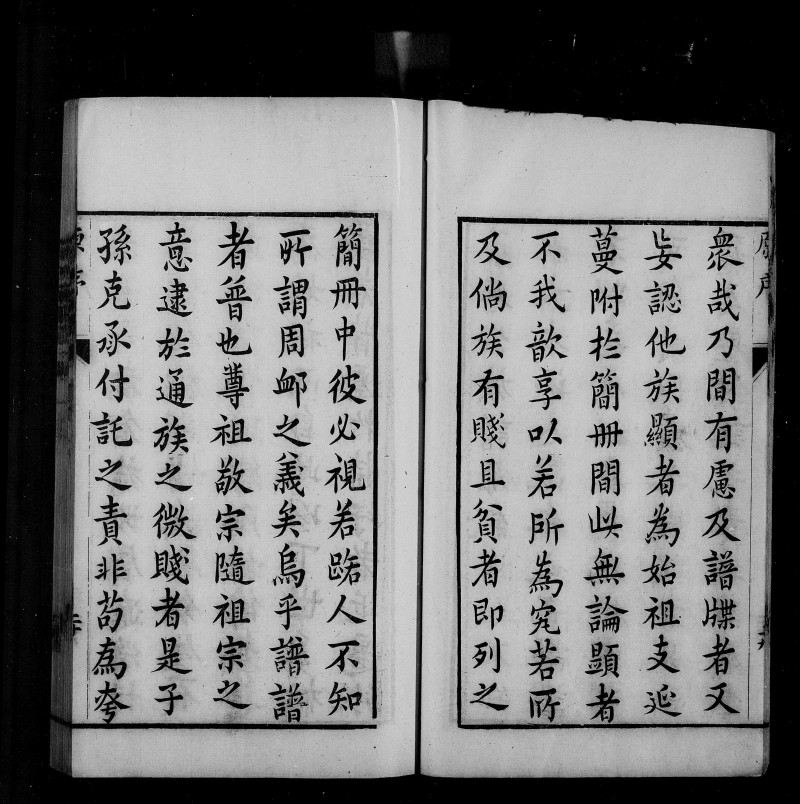 衆哉乃間有慮及譜牒者又
妄認他族顯者為始祖支延
蔓附於簡冊間此無論顯者
不我歆享以若所為究若所
及倘族有賤且貧者即列之
簡冊中彼必視若路人不知
所謂周卹之義矣烏乎譜譜
者普也尊祖敬宗隨祖宗之
意逮於通族之微賤者是子
孫克承付託之責非苟為夸
原序